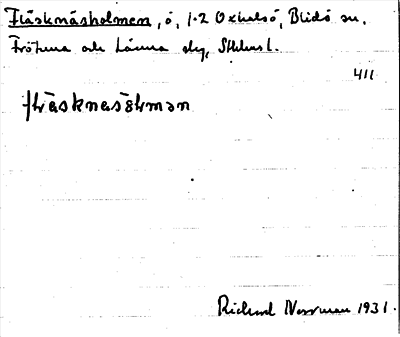 Fläsknäsholmen, ö, 1·2 Oxhalsö, Blidö sn.
Frötuna och Länna slg, Sthlms l.
411
fläsknäsålman
Richard Norrman 1931.